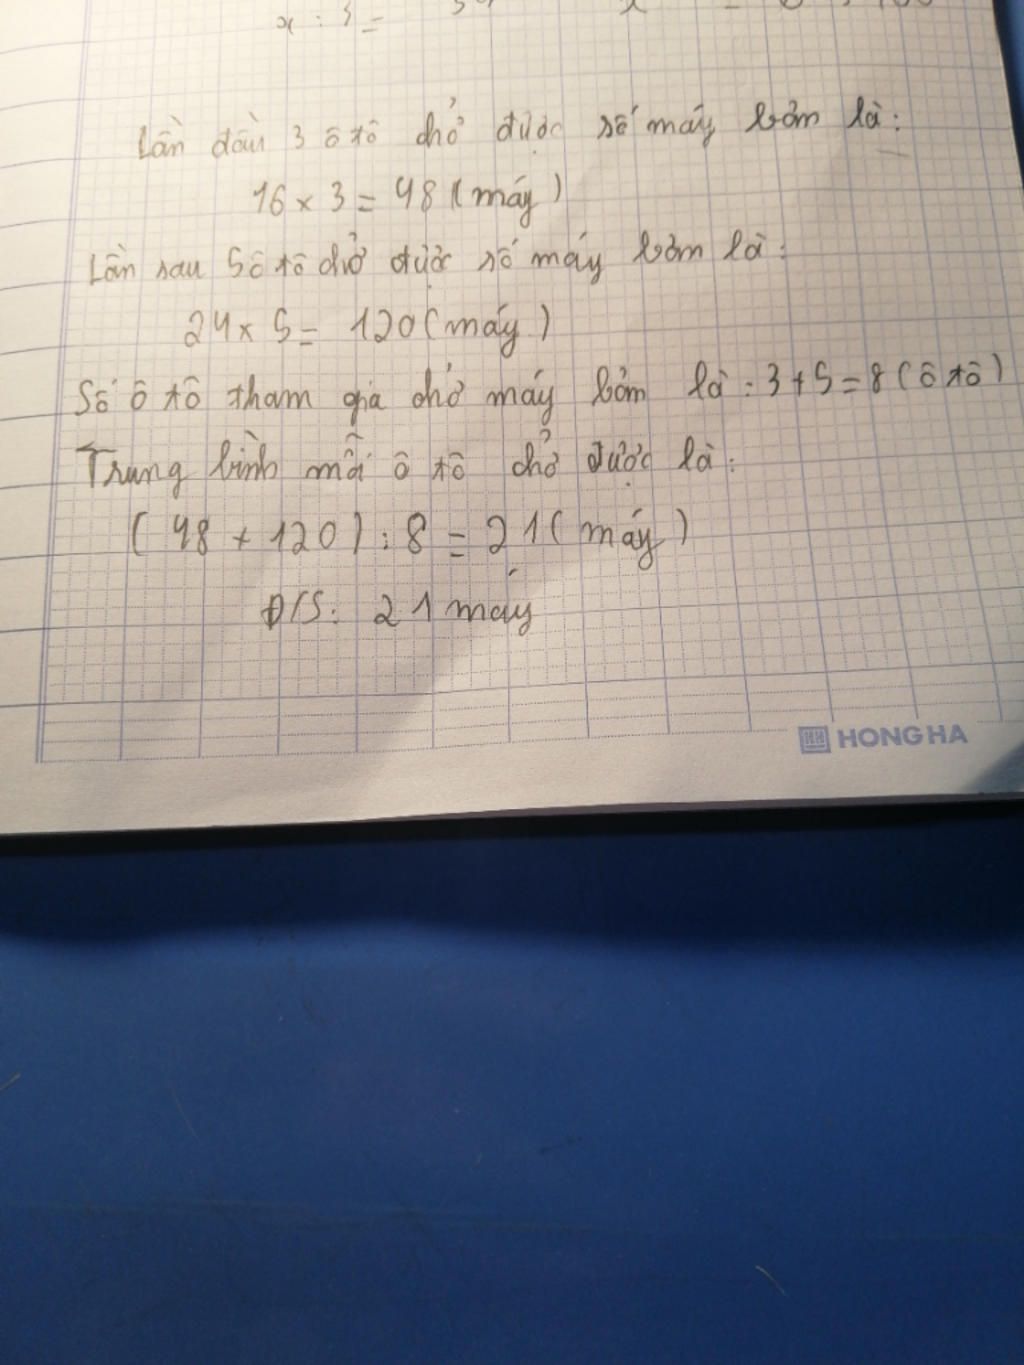 x : 3 =
Lần đầu 3 ô tô chở được số máy bơm là:
16 × 3 = 48 (máy)
Lần sau 5 ô tô chở được số máy bơm là:
24 × 5 = 120 (máy)
Số ô tô tham gia chở máy bơm là : 3 + 5 = 8 (ô tô)
Trung bình mỗi ô tô chở được là:
(48 + 120) : 8 = 21 (máy)
Đ/S: 21 máy
HONG HA